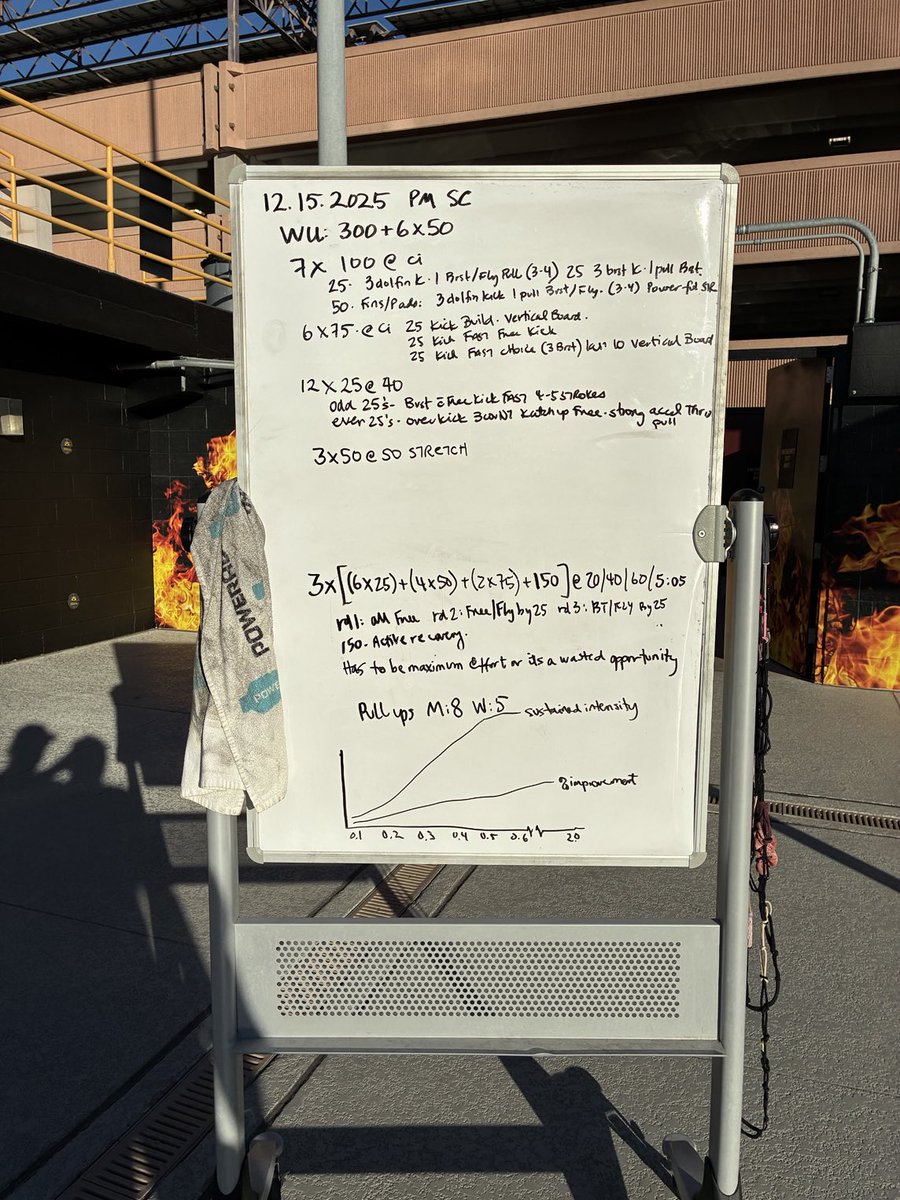 12.15.2025 PM SC
WU: 300+6x50
7x 100 @ ci
25. 3 dolfin K. 1 Brst/Fly Pull (3-4) 25 3 brst K. 1 pull Brst
50. Fins/Pads: 3 dolfin kick 1 pull Brst/Fly. (3-4) Power-ful STR
6x75. @ ci 25 Kick Build. Vertical Board.
25 Kick FAST Free Kick
25 Kick FAST choice (3 Brst) last 10 Vertical Board
12x25 @ 40
odd 25's- Brst c̄ Free kick FAST 4-5 STROKES
even 25's- over kick 3 count Katchup Free. strong accel Thru
pull
3x50 @ 50 STRETCH
3x[(6x25)+(4x50)+(2x75)+150] @ 20/40/60/5:05
rd1: all Free rd2: Free/Fly by 25 rd3: BT/FLY By 25
150. Active recovery.
Has to be maximum effort or its a wasted opportunity
Pull ups M:8 W:5
sustained intensity
% improvement
0.1 0.2 0.3 0.4 0.5 0.6 20
POWERADE
POWE